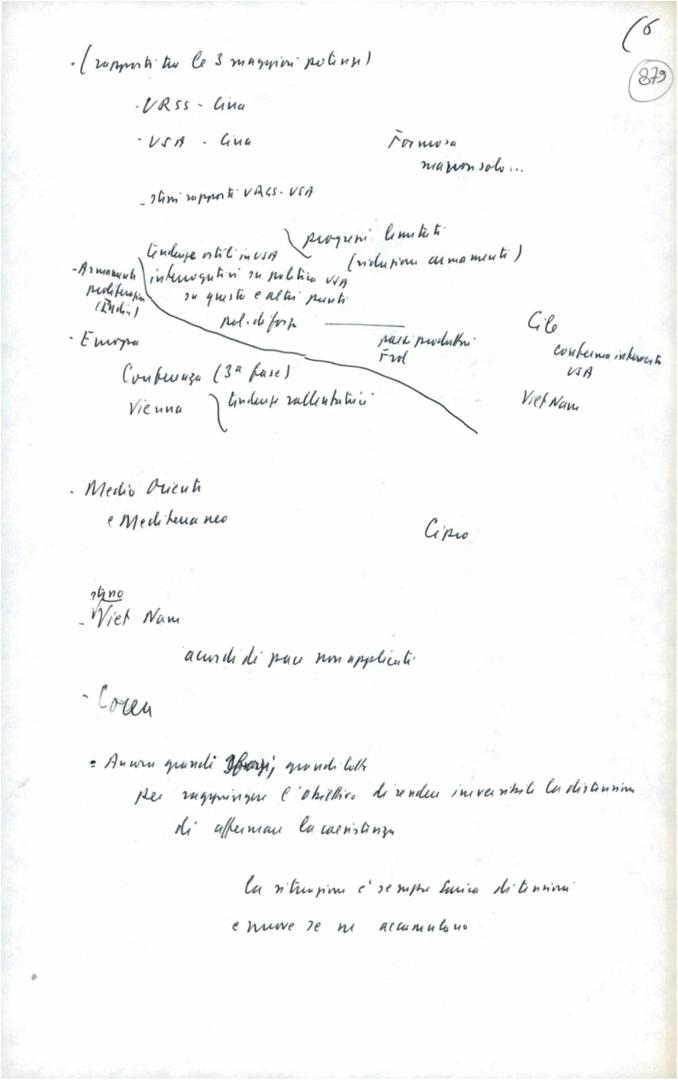 (6
879
- (rapporti tra le 3 maggiori potenze)
- URSS - Cina
- USA - Cina
Formosa
ma non solo...
- stessi rapporti URSS - USA
progressi limitati
(riduzione armamenti)
tendenze ostili in USA
interrogativi su politica USA
su questo e altri punti
- Armamenti
proliferazione
(India)
pol. di forza
paesi produttori
- Europa
Conferenza (3ª fase)
Vienna
tendenze rallentatrici
Cile
conferma intervento
USA
Viet Nam
- Medio Oriente
e Mediterraneo
Cipro
- Viet Nam
accordi di pace non applicati
- Corea
= Ancora grandi sforzi, grandi lotte
per raggiungere l'obiettivo di rendere irreversibile la distensione
di affermare la coesistenza
la situazione è sempre carica di tensioni
e nuove se ne accumulano